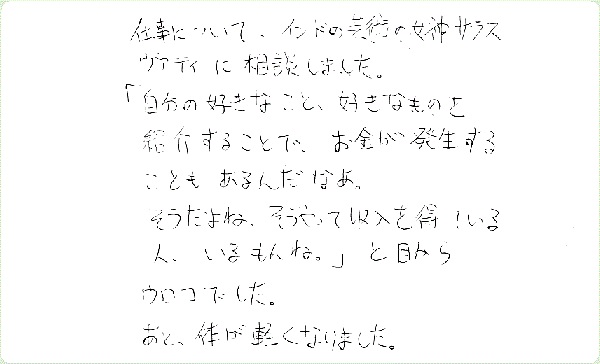 仕事について、インドの芸術の女神サラス
ヴァティに相談しました。
「自分の好きなこと、好きなものを
紹介することで、お金が発生する
こともあるんだなぁ。
そうだよね、そうやって収入を得ている
人、いるもんね。」と目から
ウロコでした。
あと、体が軽くなりました。